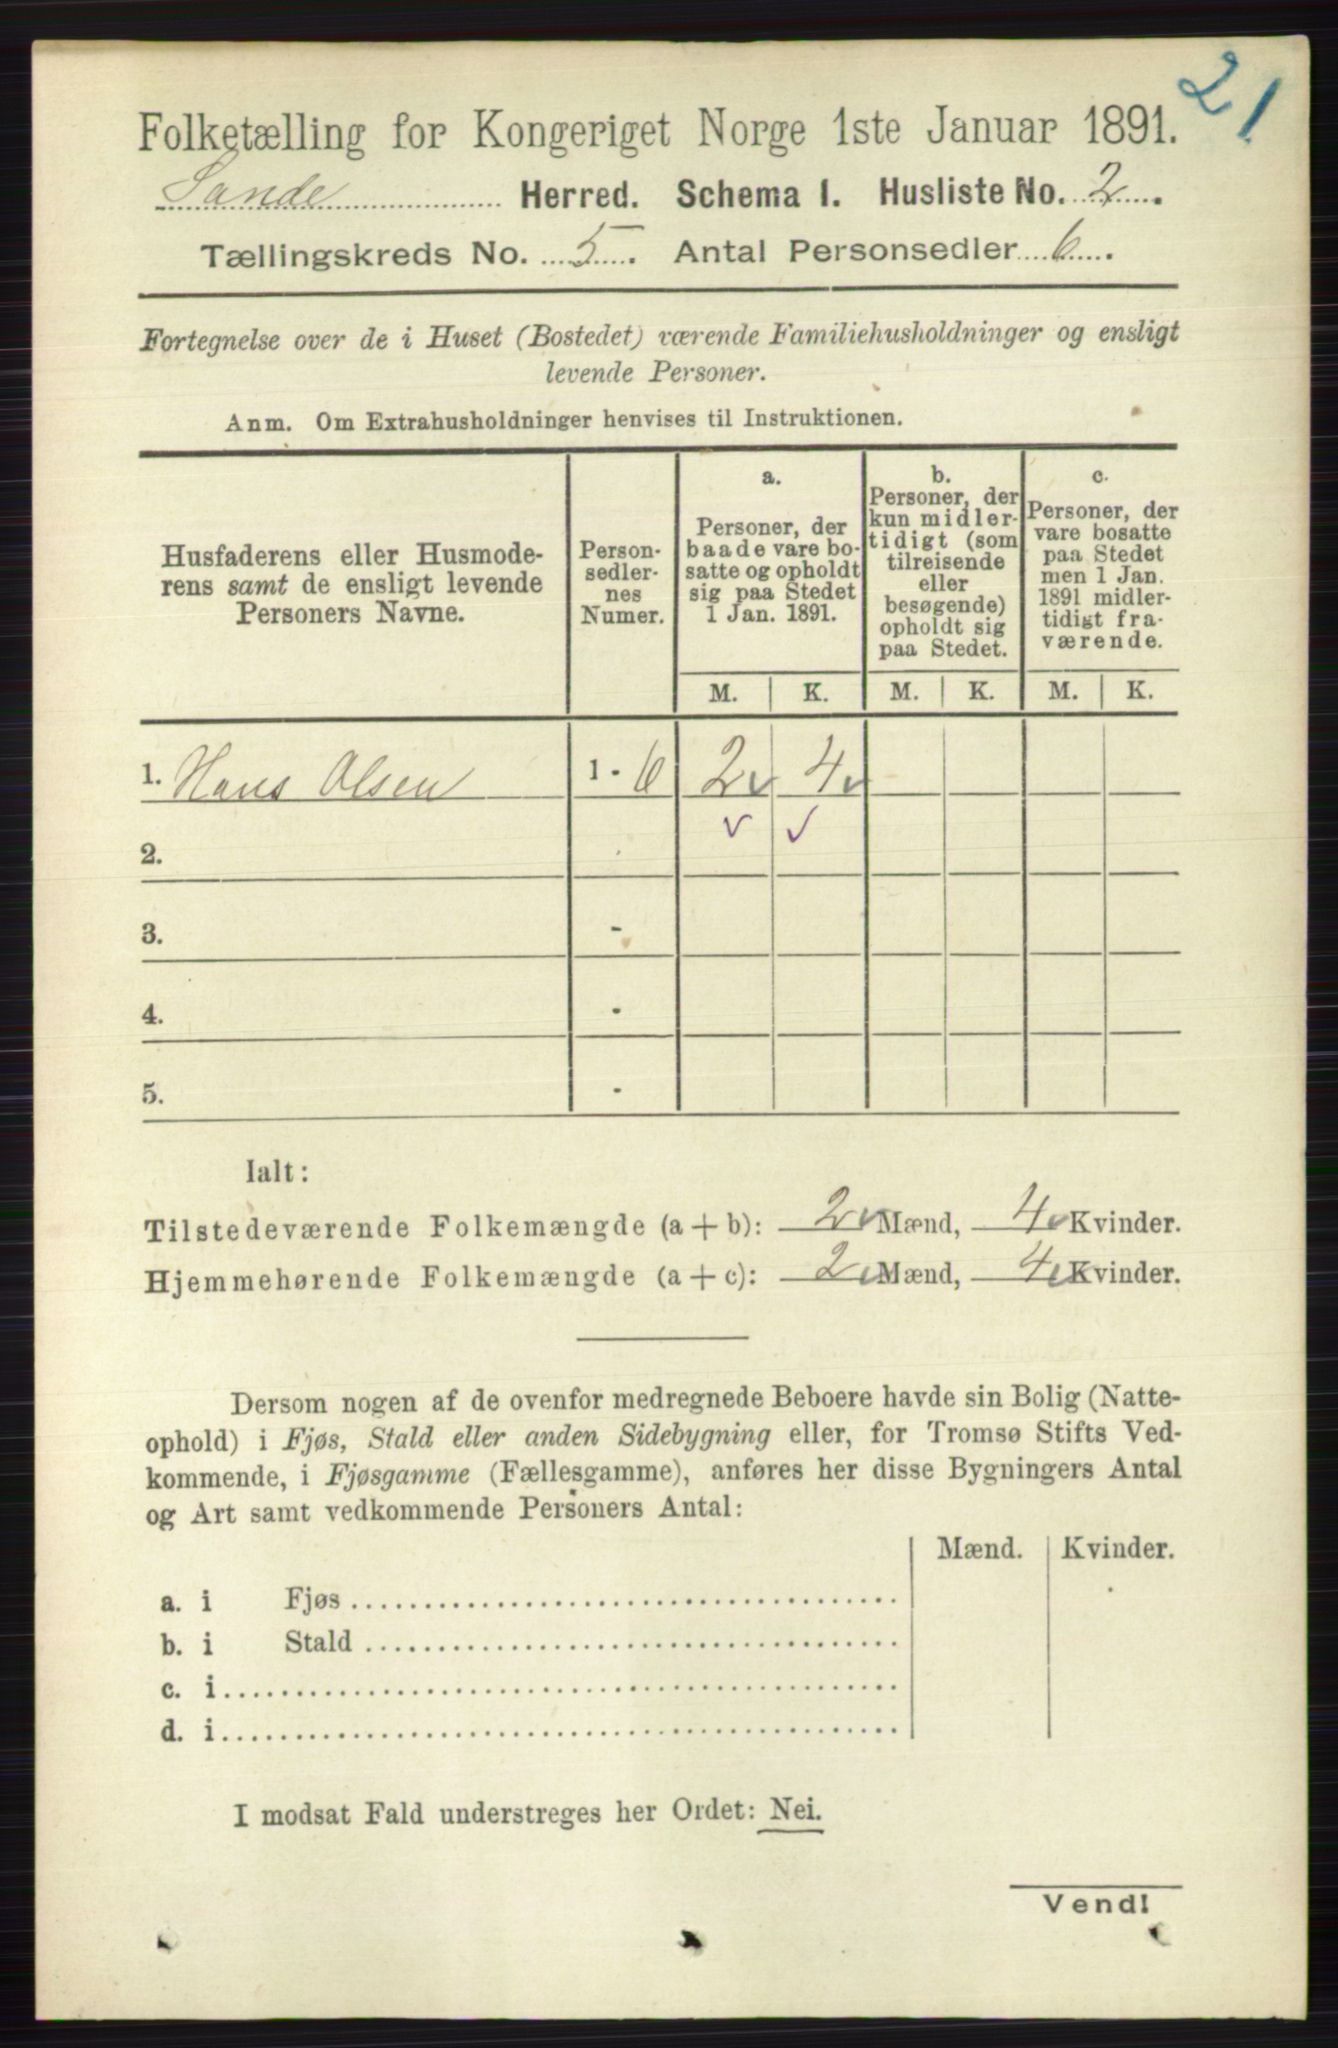 21
Folketælling for Kongeriget Norge 1ste Januar 1891.
Sande Herred. Schema 1. Husliste No. 2.
Tællingskreds No. 5. Antal Personsedler 6.
Fortegnelse over de i Huset (Bostedet) værende Familiehusholdninger og ensligt
levende Personer.
Anm. Om Extrahusholdninger henvises til Instruktionen.
Husfaderens eller Husmode-
rens samt de ensligt levende
Personers Navne.
Person-
sedler-
nes
Numer.
a.
Personer, der
baade vare bo-
satte og opholdt
sig paa Stedet
1 Jan. 1891.
b.
Personer, der
kun midler-
tidigt (som
tilreisende
eller
besøgende)
opholdt sig
paa Stedet.
c.
Personer, der
vare bosatte
paa Stedet
men 1 Jan.
1891 midler-
tidigt fra-
værende.
M. K. M. K. M. K.
1. Hans Olsen 1 - 6 2 4
2.
3. -
4. -
5. -
Ialt:
Tilstedeværende Folkemængde (a + b): 2 Mænd, 4 Kvinder.
Hjemmehørende Folkemængde (a + c): 2 Mænd, 4 Kvinder.
Dersom nogen af de ovenfor medregnede Beboere havde sin Bolig (Natte-
ophold) i Fjøs, Stald eller anden Sidebygning eller, for Tromsø Stifts Ved-
kommende, i Fjøsgamme (Fællesgamme), anføres her disse Bygningers Antal
og Art samt vedkommende Personers Antal:
Mænd. Kvinder.
a. i Fjøs
b. i Stald
c. i
d. i
I modsat Fald understreges her Ordet: Nei.
Vend!